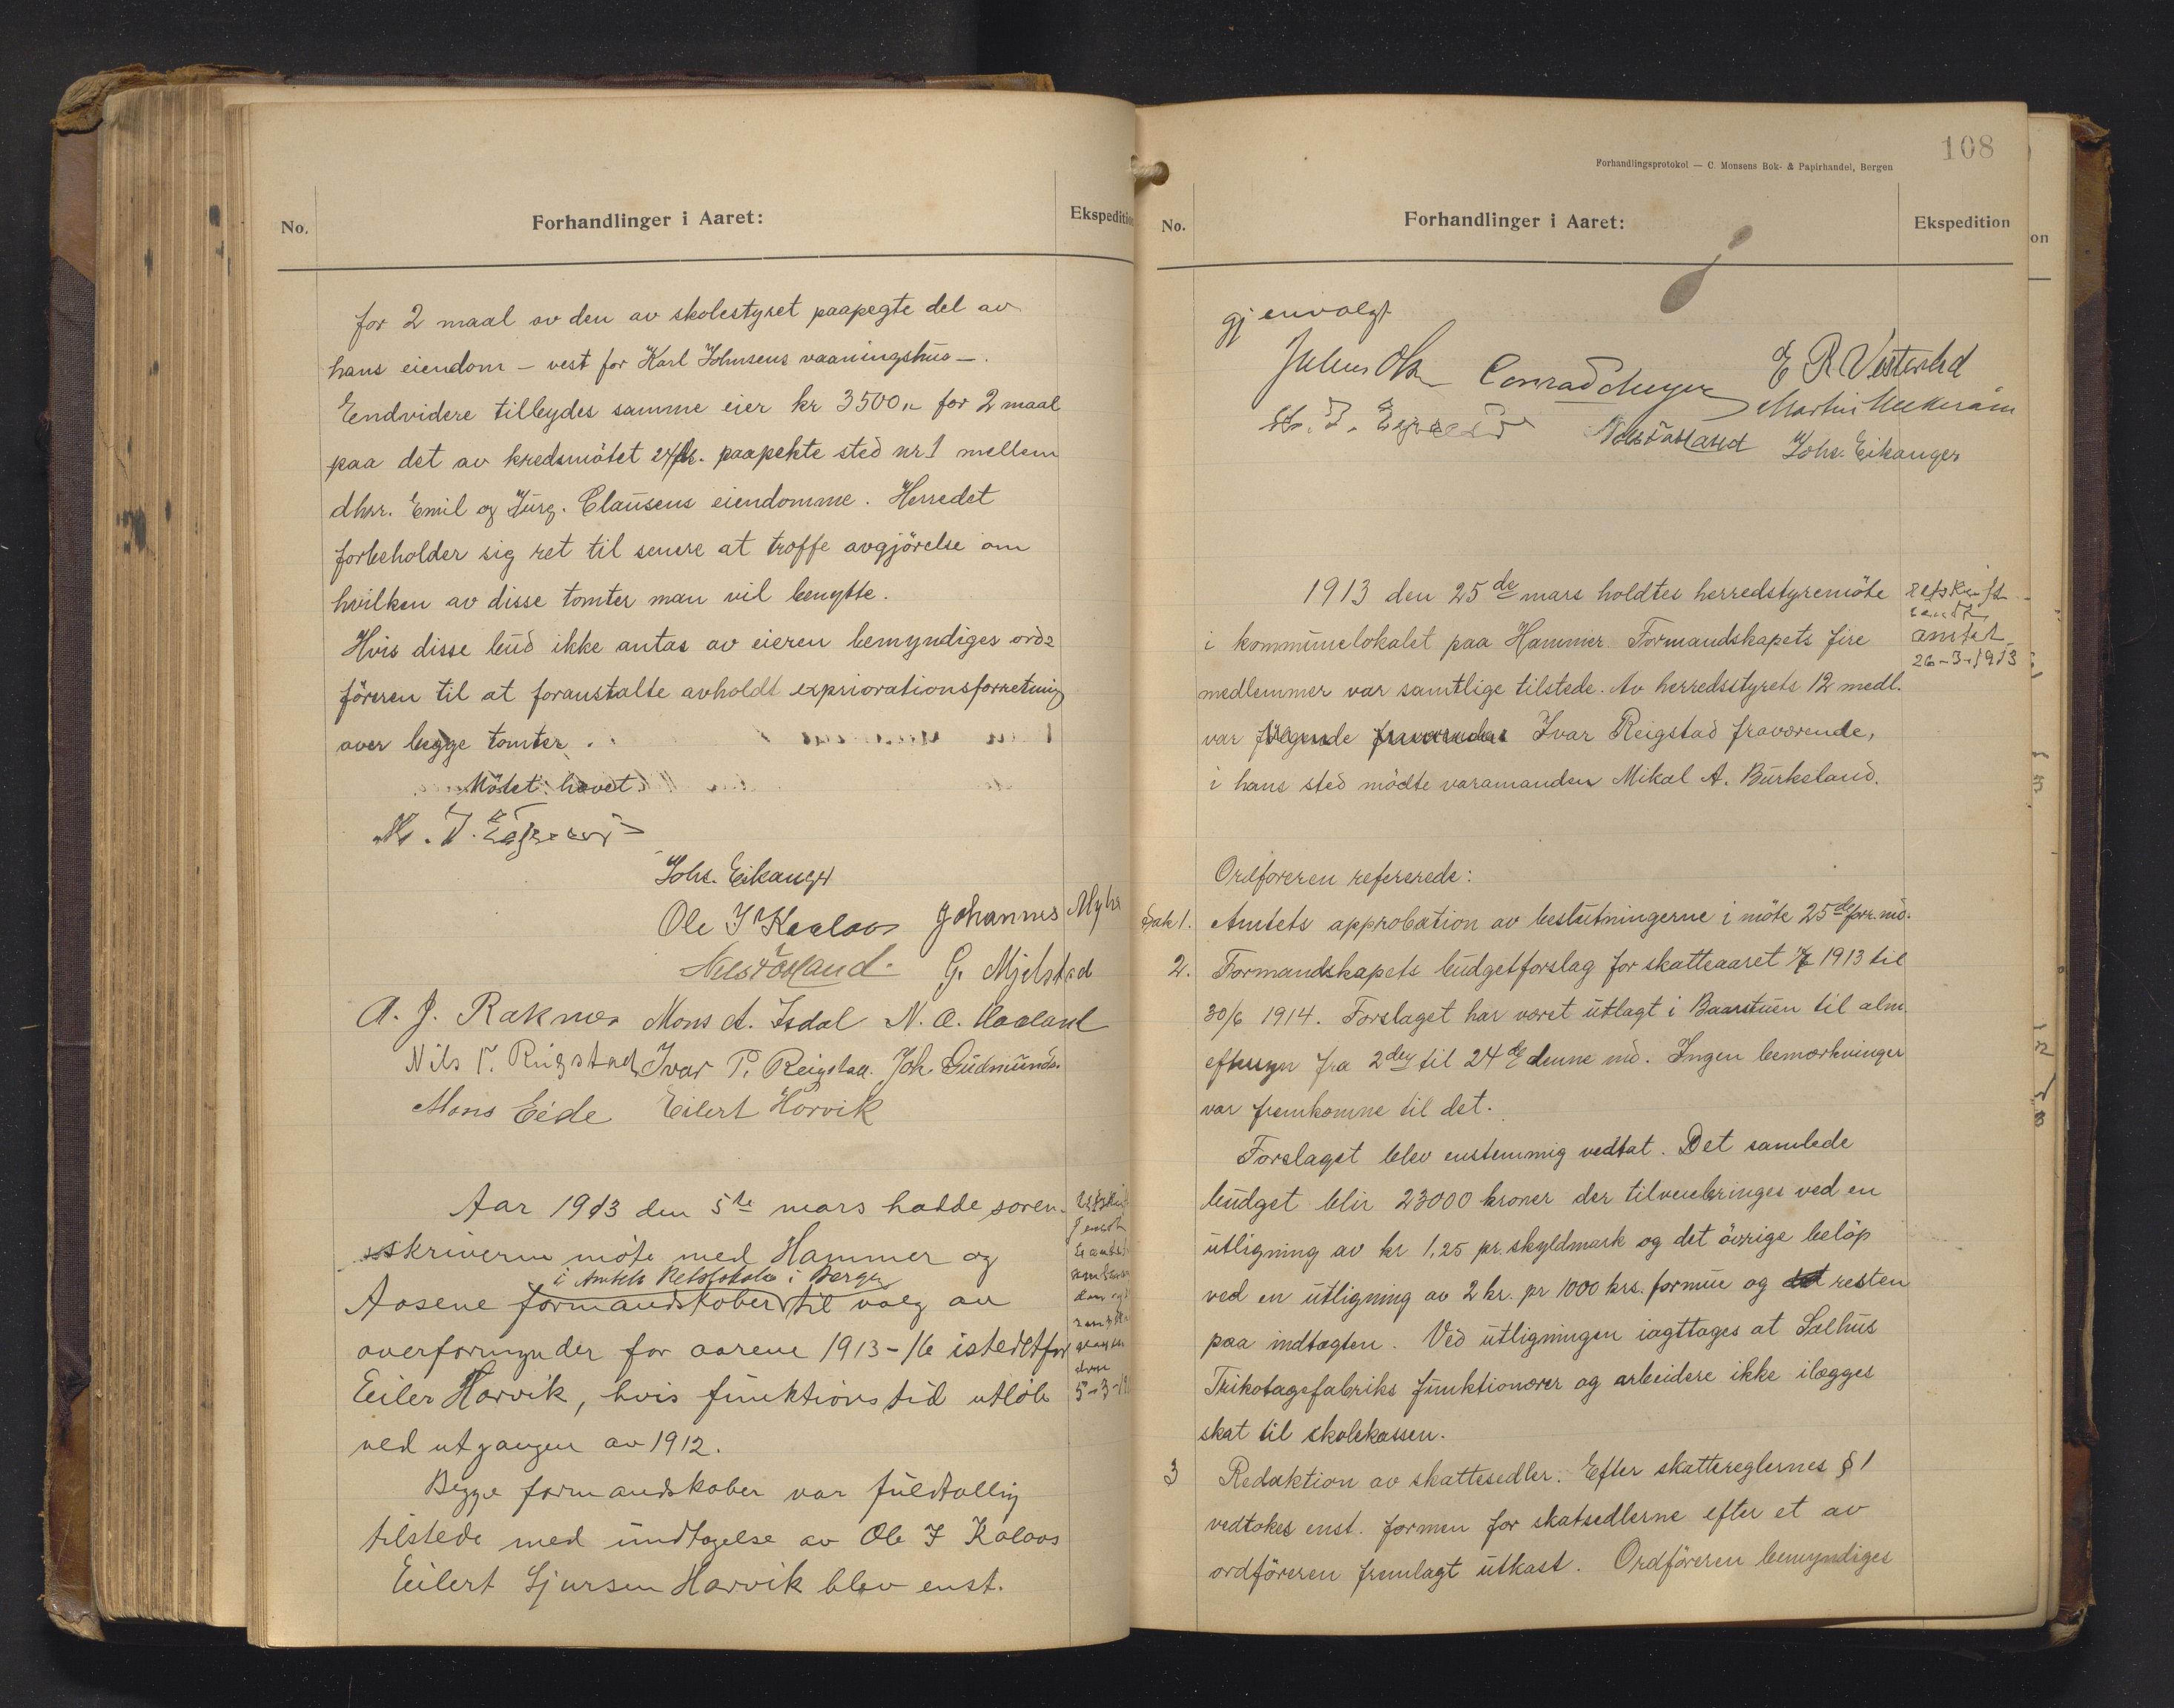 No.
Forhandlinger i Aaret:
Ekspedition
for 2 maal av den av skolestyret paapegte del av
hans eiendom – vest for Karl Johnsens vaaningshus –.
Eendvidere tilbydes samme eier kr 3500,- for 2 maal
paa det av kredsmötet paapekte sted nr. 1 mellem
dhrr. Emil og Jürg. Clausens eiendomme. Herredet
forbeholder sig ret til senere at træffe avgjörelse om
hvilken av disse tomter man vil benytte.
Hvis disse bud ikke antas av eieren bemyndiges ord=
föreren til at foranstalte avholdt expriorationsforretning
over begge tomter.
Mötet hævet.
Johs. Eikanger
Ole J Kaalaas Johannes Myhr
Nils Fosland. G. Mjelstad
A. J. Raknes Mons A. Isdal N. A. Haaland
Nils T. Rigstad Ivar P. Reigstad. Joh. Gudmunds.
Mons Eide Eilert Horvik
Aar 1913 den 5te mars hadde soren-
skriveren möte med Hammer og
i Amtets Retslokale i Bergen
Aasene formandskaber til valg av
overformynder for aarene 1913-16 istedetfor
Eiler Horvik, hvis funktionstid utlöb
ved utgangen av 1912.
Begge formandskaber var fuldtallig
tilstede med undtagelse av Ole J Kalaas
Eilert Sjursen Horvik blev enst.
5-3-19
108
Forhandlingsprotokol — C. Monsens Bok- & Papirhandel, Bergen
No.
Forhandlinger i Aaret:
Ekspedition
on
gjenvalgt.
Julius Olsen Conrad Meyer E R Vesterlid
Nils Fosland Johs. Eikanger
1913 den 25de mars holdtes herredstyremöte
i kommunelokalet paa Hammer. Formandskapets fire
medlemmer var samtlige tilstede. Av herredsstyrets 12 medl.
var fölgende fraværendes Ivar Reigstad fraværende,
i hans sted mödte varamanden Mikal A. Burkeland.
Utskrift
sendt
amtet
26-3-1913
Ordföreren refererede:
Sak 1. Amtets approbation av beslutningerne i möte 25de forr. md.
2. Formandskapets budgetforslag for skatteaaret 1/7 1913 til
30/6 1914. Forslaget har været utlagt i Baarstuen til alm.
eftersyn fra 2den til 24de denne md. Ingen bemærkninger
var fremkomne til det.
Forslaget blev enstemmig vedtat. Det samlede
budget blir 23000 kroner der tilveiebringes ved en
utligning av kr 1,25 pr. skyldmark og det övrige belöp
ved en utligning av 2 kr. pr 1000 krs. formue og det resten
paa indtægten. Ved utligningen iagttages at Salhus
Trikotagefabriks funktionærer og arbeidere ikke ilægges
skat til skolekassen.
3 Redaktion av skattesedler. Efter skattereglernes § 1
vedtokes enst. formen for skatsedlerne efter et av
ordföreren fremlagt utkast. Ordföreren bemyndiges